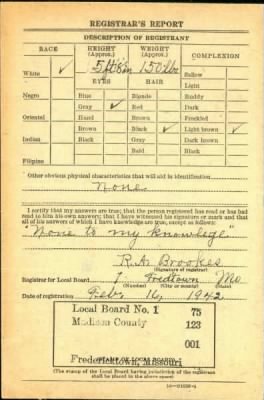 REGISTRAR'S REPORT
DESCRIPTION OF REGISTRANT
RACE HEIGHT (Approx.) WEIGHT (Approx.) COMPLEXION
White ✓ 5 ft 8 in 150 lbs Sallow
EYES HAIR Light
Negro Blue Blonde Ruddy
Gray ✓ Red Dark
Oriental Hazel Brown Freckled
Brown Black ✓ Light brown ✓
Indian Black Gray Dark brown
Bald Black
Filipino
Other obvious physical characteristics that will aid in identification
None
I certify that my answers are true; that the person registered has read or has had
read to him his own answers; that I have witnessed his signature or mark and that
all of his answers of which I have knowledge are true, except as follows:
"None to my knowledge"
R. A. Brookes
(Signature of registrar)
Registrar for Local Board 1 Fredtown Mo
(Number) (City or county) (State)
Date of registration Feb. 16, 1942
Local Board No. 1 75
Madison County 123
001
Fredericktown, Missouri
(STAMP OF LOCAL BOARD)
(The stamp of the Local Board having jurisdiction of the registrant
shall be placed in the above space.)